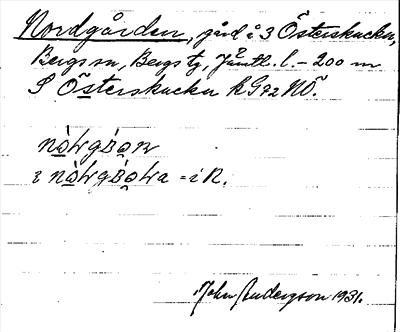 Nordgården, gård å 3 Österskucku,
Bergs sn, Bergs tg, Jämtl. l. – 200 m
S Österskucku RG72NÖ.
i = i R.
John Andersson 1931.